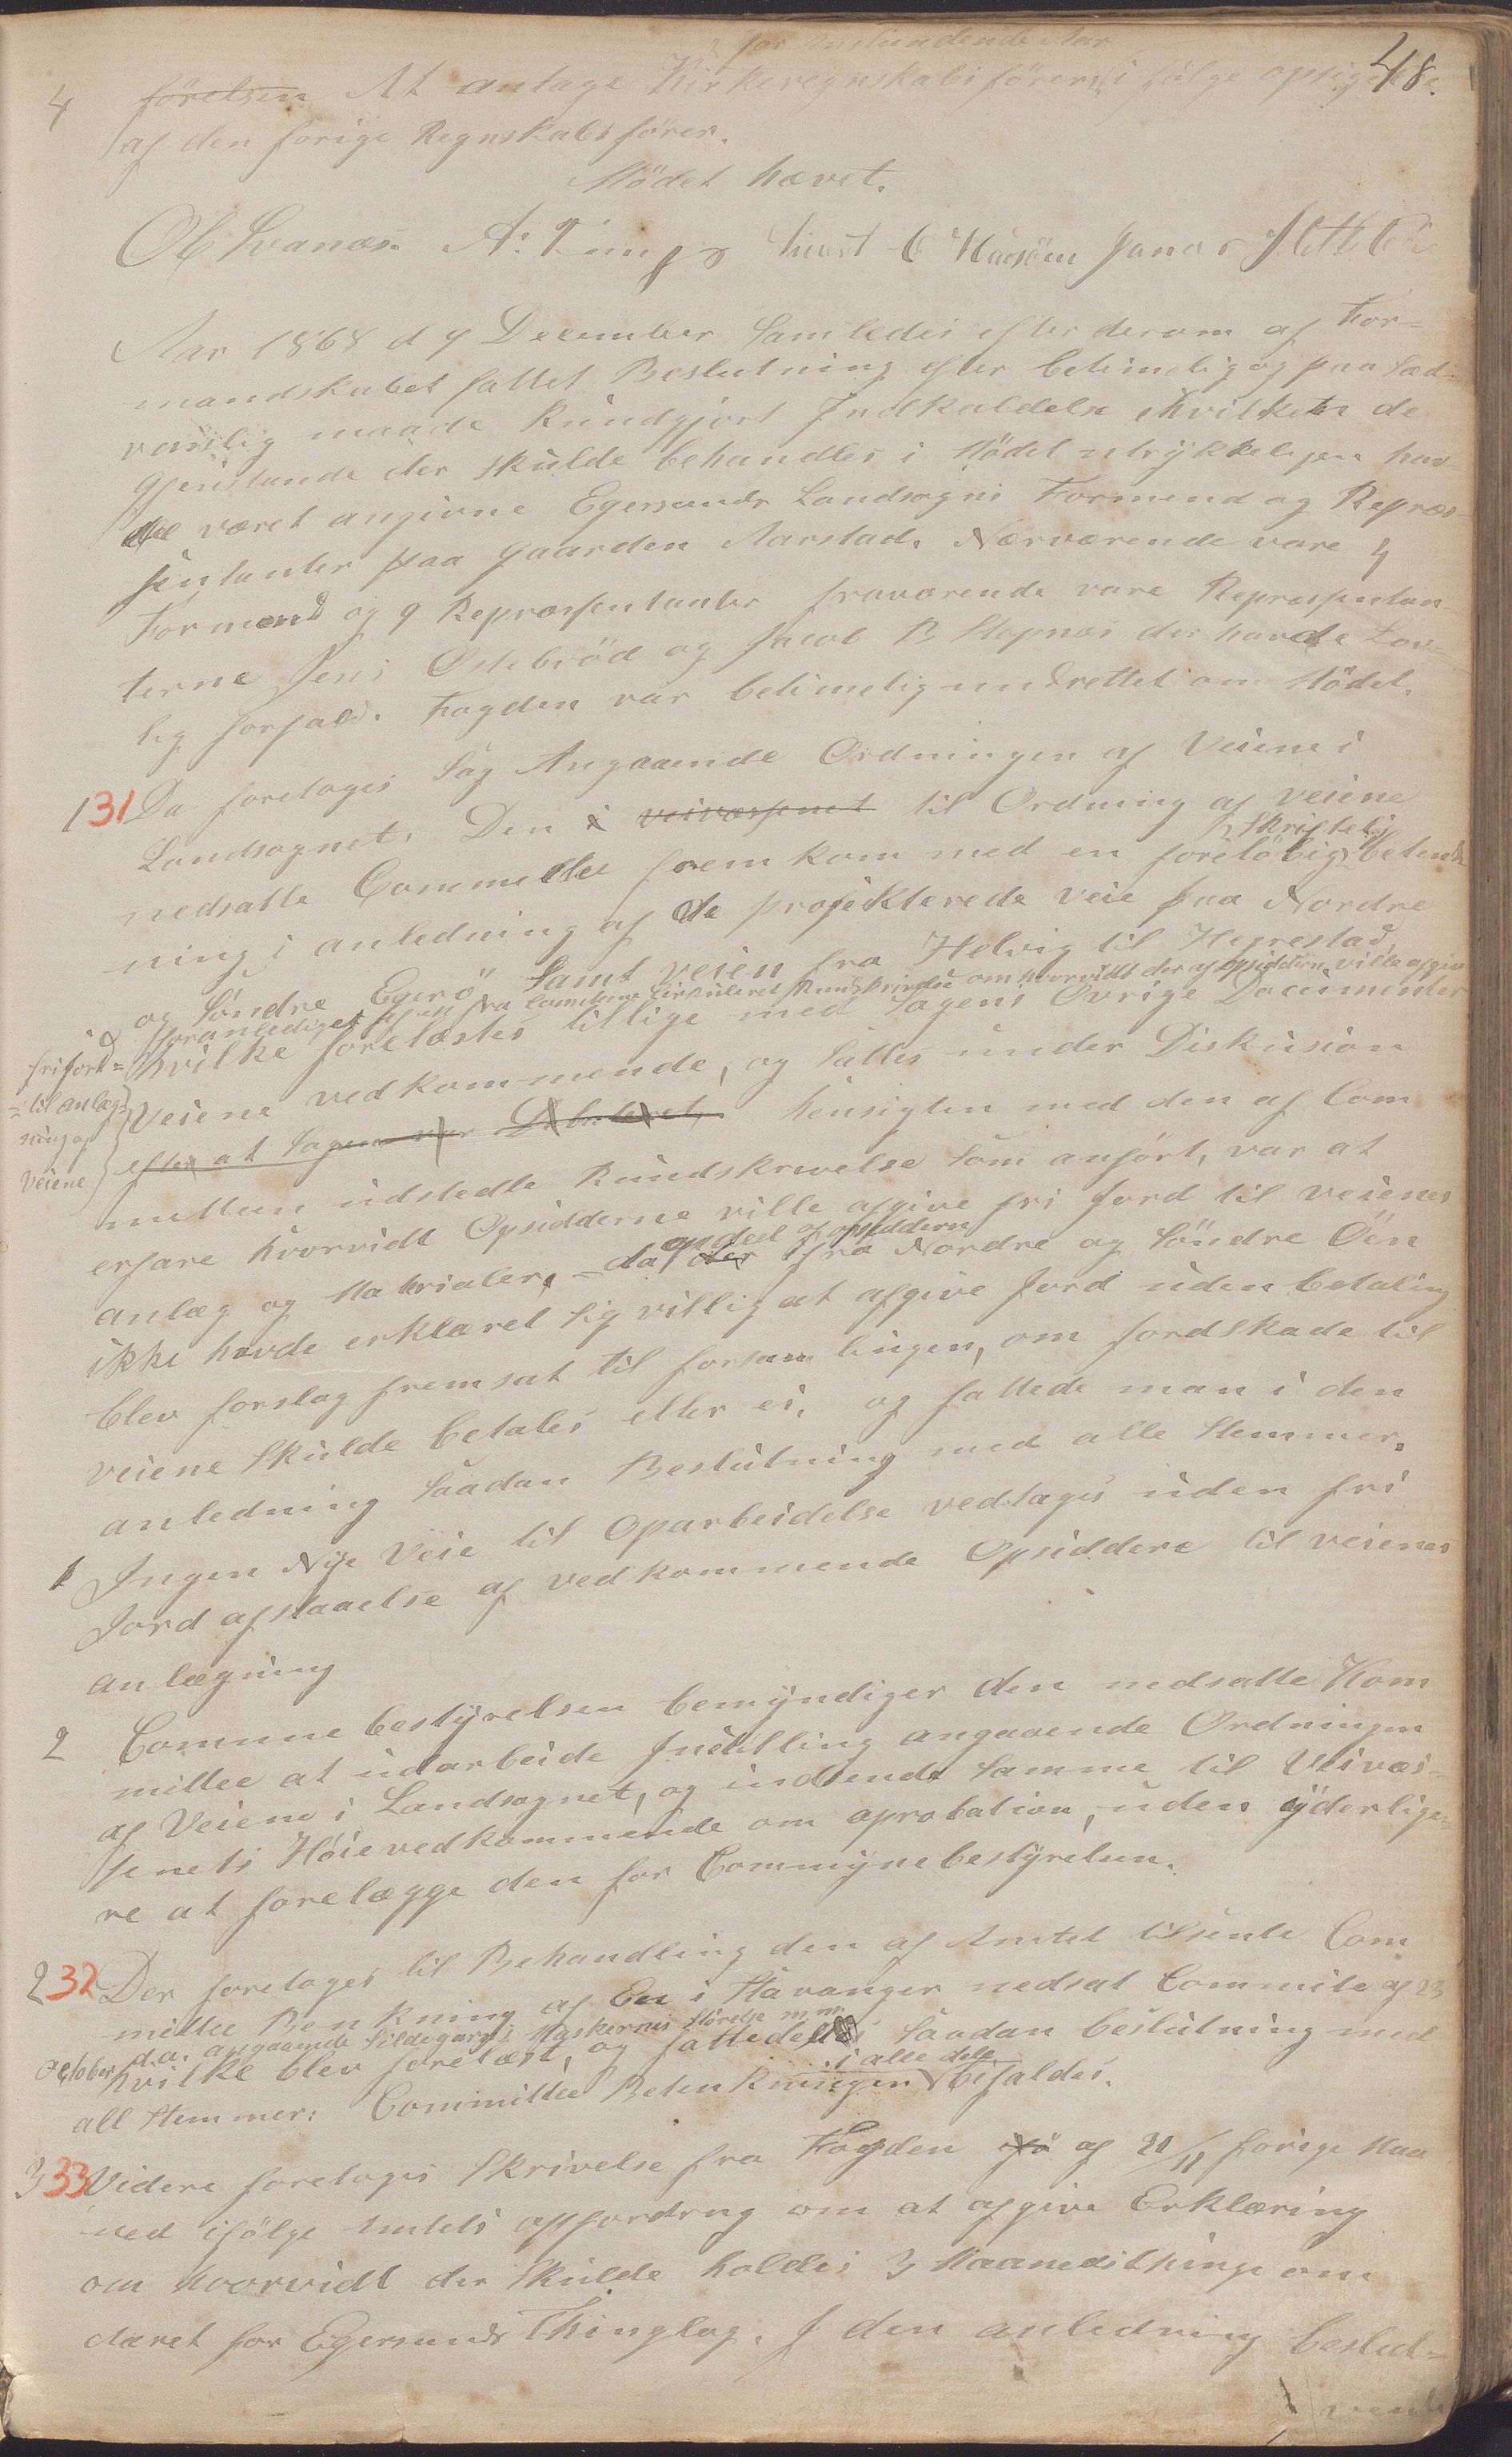 48.
for anstundende Aar
4 førelsen At antage Kirkeregnskabsfører i følge opsigelse
af den forige Regnskabsfører.
Mödet hævet.
Ol Svanæs. A. Tengs Sivert C Håsöen Janas
Aar 1868 d 9 December samledes efter derom af For=
mandskabet fattet Beslutning efter betimelig og paa sæd-
vanlig maade kundgjort Indkaldelse i hvilken de
Gjenstande der skulde behandles i Mödet utrykkeligen hav-
de været angivne Egersunds Landsogns Formend og Repræs-
sentanter paa Gaarden Aarstad. Nærværende vare 4
Formend og 9 Repræssentanter fraværende vare Repræssentan-
terne Jens Ostebröd og Jacob B Hopnæs der havde Lov-
lig forfald. Fogden var betimelig undrettet om Mödet.
131 Da foretoges Sag Angaaende Ordningen af Veiene i
Landsognet. Den i veivæssenet til Ordning af veiene
nedsatte Committee frem kom med en foreløbig skriftelig betænk
ning i anledning af de projekterede veie paa Nordre
og Söndre Egerö samt veien fra Helvig til Hegrestad,
foranlediget ved en fra Comiteen Cirkuleret Rundskrivelse om hvorvidt der af opsidderne ville afgive
frijord=
=til anlæg=
ning af
veiene
hvilke forelæstes tillige med Sagens Øvrige Documenter
Veiene vedkommende, og sattes under Diskusion
efter at Sagen var Debateret, hensigten med den af Com
mitteen udstedte Rundskrivelse som anfört, var at
erfare hvorvidt Opsidderne ville afgive fri Jord til veienes
anlæg og Materialer, - da en deel af opsidderne der fra Nordre og Söndre Öen
ikke havde erklæret sig villig at afgive Jord uden betaling
blev forslag fremsat til forsamlingen, om Jordskade til
veiene skulde betales eller ei, og fattede man i den
anledning saadan Beslutning med alle Stemmer.
1 Ingen Nye Veie til Oparbeidelse vedtages uden fri
Jord afstaaelse af vedkommende Opsiddere til veienes
anlægning
2 Commune bestyrelsen bemyndiger den nedsatte Kom
mittee at udarbeide Indstilling angaaende Ordningen
af Veiene i Landsognet, og indsende samme til Veivæs-
senets Höievedkommende om aprobation, uden yderlige=
re at forelægge den for Commynebestyrelsen.
232 Der foretoges til Behandling den af Amtet tilsente Com
mittee Betenkning af En i Stavanger nedsat Commite af 23
October d.a. angaaende Sildegarns Maskernes störelse m.m.
hvilke blev forelæst, og fattedes saadan beslutning med
all Stemmer: Committee Betenkningen i alle dele bifaldes.
333 Videre foretoges Skrivelse fra Fogden af 21/11 forige Maa
ned ifölge Amtets opfordrng om at afgive Erklæring
om hvorvidt der skulde holdes 3 Maanedsthinge om
Aaret for Egersunds Thinglag. I den anledning beslut=
vende